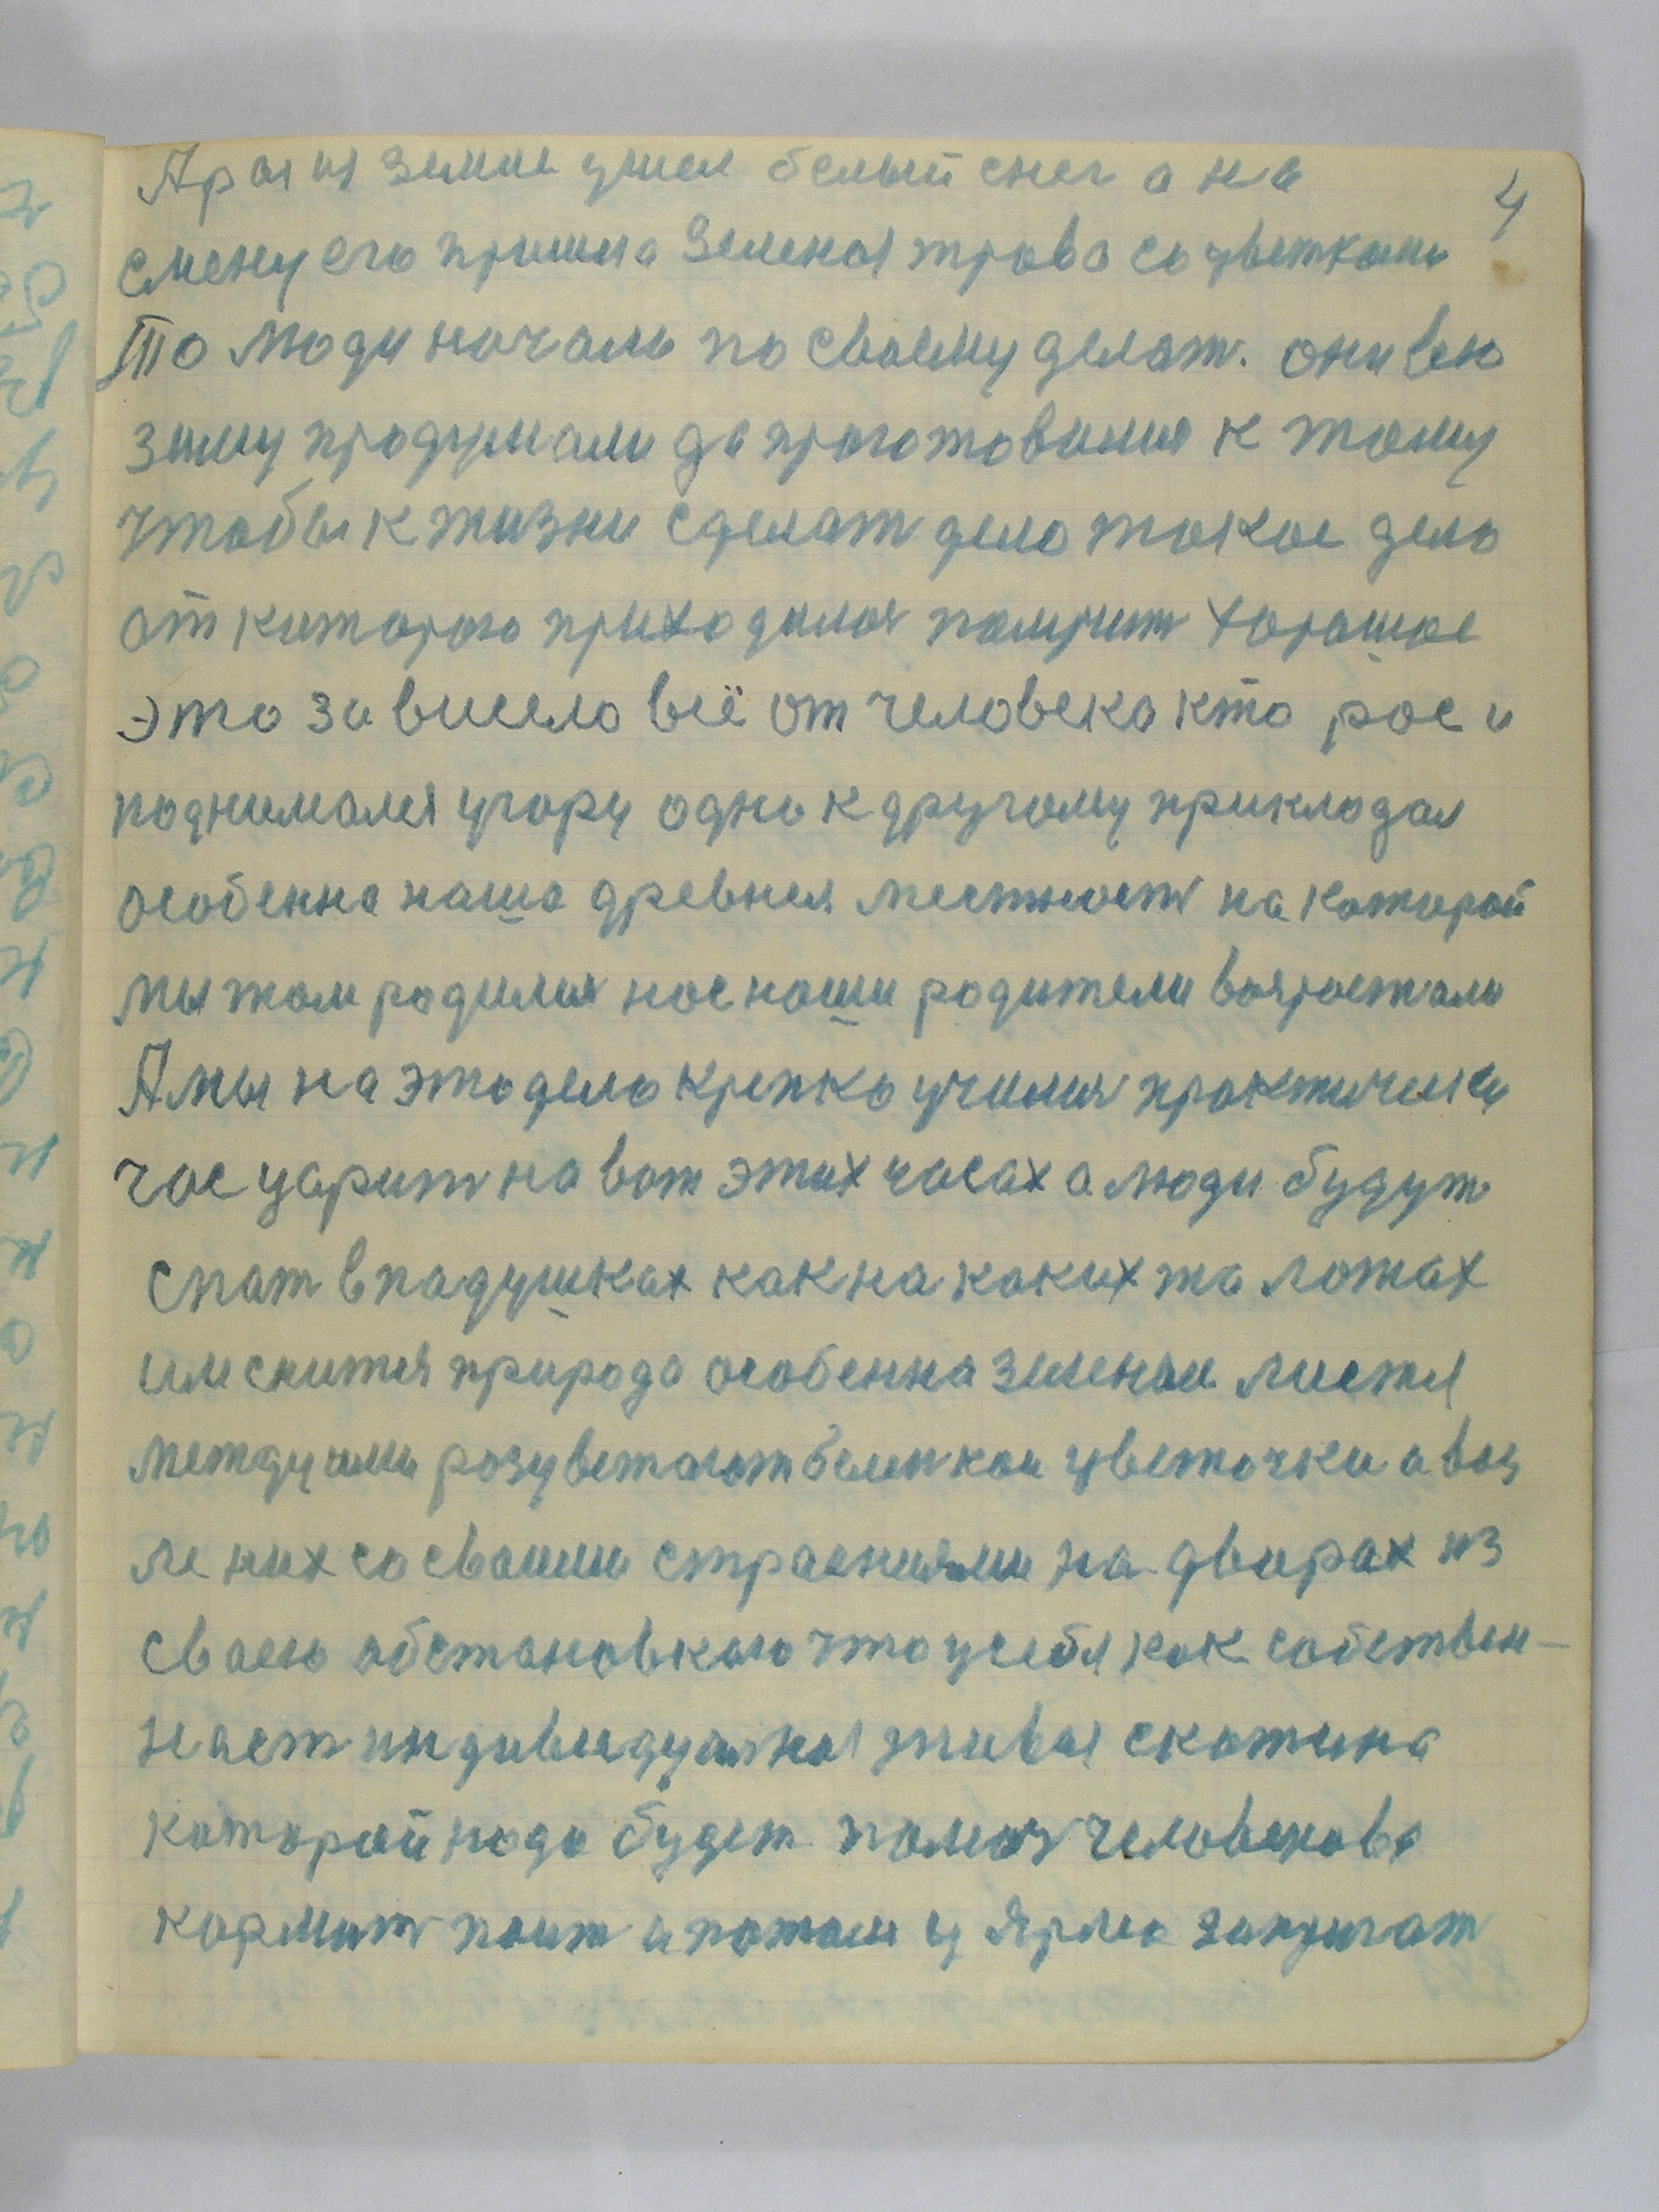 4
А раз из земли ушел белый снег а на
смену его пришла зеленая трова со цветками
То люди начали по своему делат. они всю
зиму продумали да проготовились к тому
чтобы к жизни сделат дело такое дело
от которого приходилос получит хорошое
это зависело всё от человека кто рос и
поднимался угору одно к другому прикладал
особенна наша древнея местност на которой
мы там родилис нас наши родители возростали
А мы на это дело крепко учились практически
час ударит на вот этих часах а люди будут
спат в падушках как на каких та ложах
им снится природа особенна зеленаи листя
между ими розцветают беленкаи цветочки а воз
ле них со своими страениями на дворах из
своею обстановкаю что у себя как собствен-
наст индивидуалная живая скотина
которой нада будет помоч человекова
кормит поит а потом у ярмо запрягат